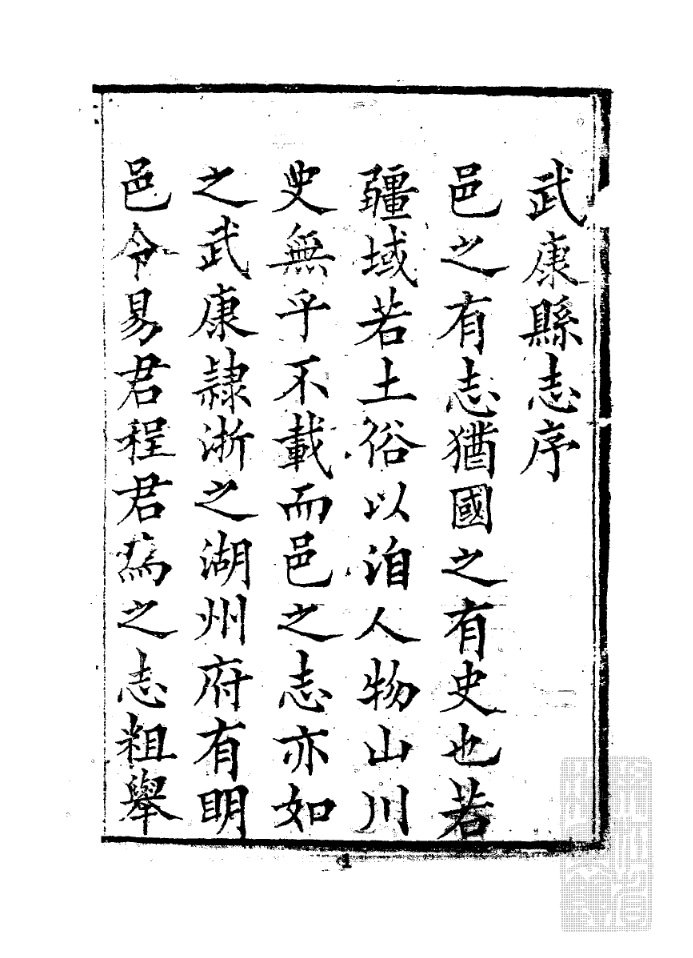 武康縣志序
邑之有志猶國之有史也若
疆域若土俗以洎人物山川
史無乎不載而邑之志亦如
之武康隷浙之湖州府有明
邑令易君程君爲之志粗舉